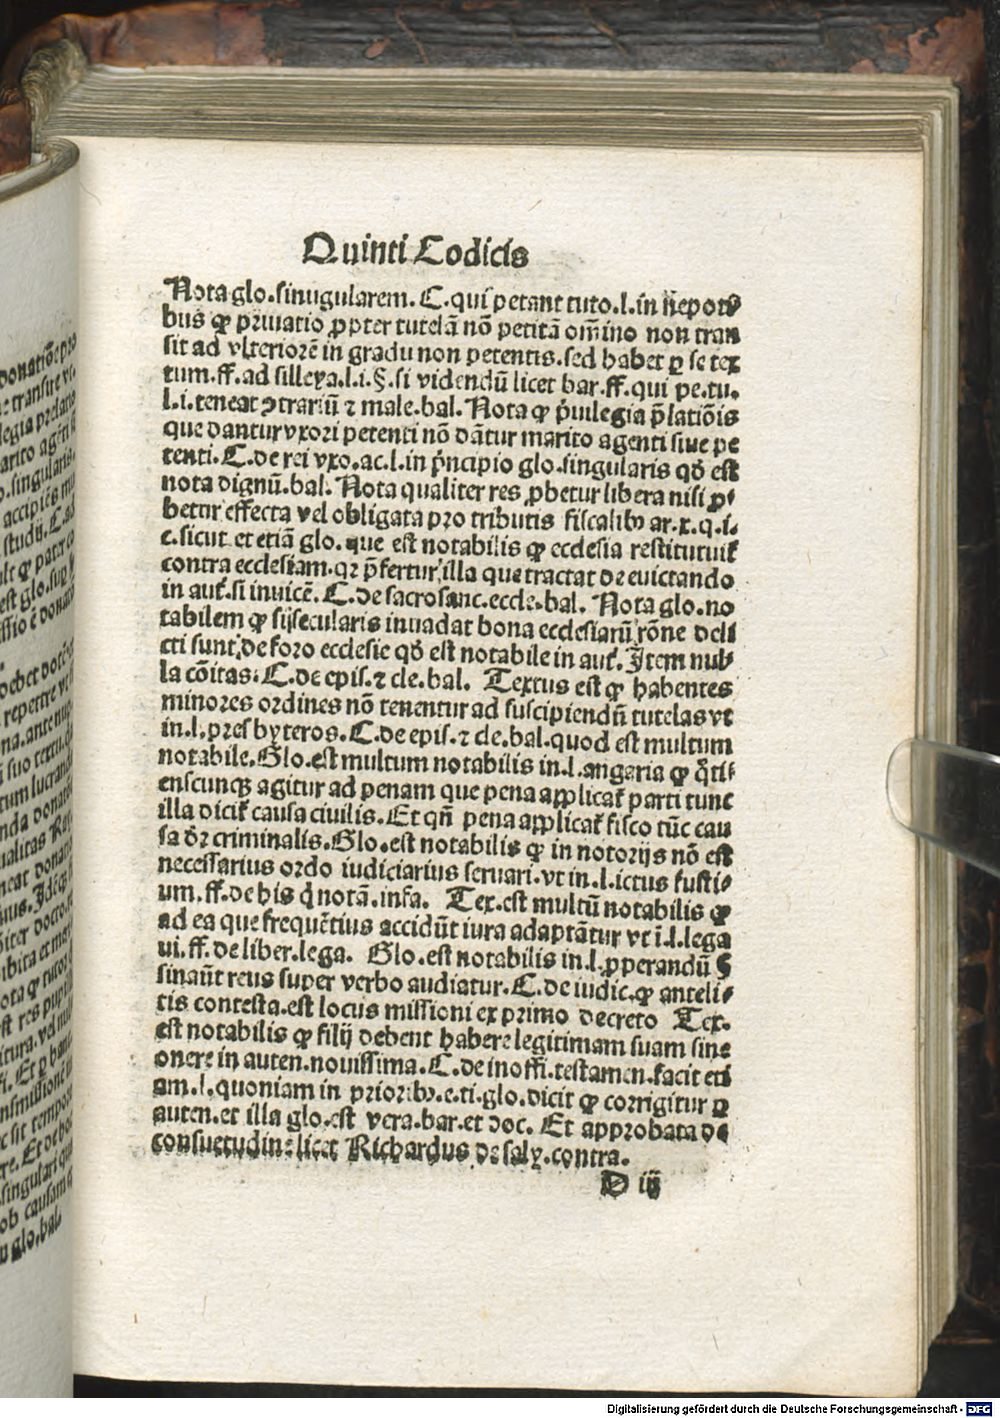 Quinti Codicis
Nota glo.sinugularem. C.qui petant tuto.l.in nepoti
bus ꝙ priuatio ꝓpter tutelā nō petitā om̄ino non tran
sit ad vlteriorē in gradu non petentis.sed habet ꝑ se tex
tum.ff.ad silleya.l.i.§.si videndū licet bar.ff.qui pe.tu.
l.i.teneat ꝯtrariū ⁊ male.bal. Nota ꝙ p̄uilegia p̄latiōis
que dantur vxori petenti nō dātur marito agenti siue pe
tenti. C.de rei vxo.ac.l.in p̄ncipio glo.singularis qō est
nota dignū.bal. Nota qualiter res ꝓbetur libera nisi ꝓ⸗
betur effecta vel obligata pro tributis fiscalibꝰ ar.x.q.i.
c.sicut et etiā glo. que est notabilis ꝙ ecclesia restituitur̄
contra ecclesiam.qꝛ p̄fertur illa que tractat de euictando
in aut̄.si inuicē. C.de sacrosanc.eccle.bal. Nota glo.no
tabilem ꝙ si secularis inuadat bona ecclesiarū rōne deli
cti sunt de foro ecclesie qō est notabile in aut̄. Item nul⸗
la cōitas: C.de epis.⁊ cle.bal. Textus est ꝙ habentes
minores ordines nō tenentur ad suscipiendū tutelas vt
in.l.presbyteros. C.de epis.⁊ cle.bal.quod est multum
notabile. Glo.est multum notabilis in.l.angaria ꝙ q̄ti⸗
enscunqꝫ agitur ad penam que pena applicat̄ parti tunc
illa dicit̄ causa ciuilis. Et qn̄ pena applicat̄ fisco tūc cau
sa dr̄ criminalis. Glo.est notabilis ꝙ in notorijs nō est
necessarius ordo iudiciarius seruari.vt in.l.ictus fusti⸗
um.ff.de his q̄ notā.infa. Tex.est multū notabilis ꝙ
ad ea que frequētius accidūt iura adaptātur vt ī.l.lega
ui.ff.de liber.lega. Glo.est notabilis in.l.ꝓperandū §
sinaūt reus super verbo audiatur. C.de iudic.ꝙ anteli⸗
tis contesta.est locus missioni ex primo decreto Tex.
est notabilis ꝙ filij debent habere legitimam suam sine
onere in auten.nouissima. C.de inoffi.testamen.facit eti
am.l.quoniam in prioribꝰ.e.ti.glo.dicit ꝙ corrigitur ꝑ
auten.et illa glo.est vera.bar.et doc. Et approbata de
consuetudine licet Richardus de saly.contra.
D iij
Digitalisierung gefördert durch die Deutsche Forschungsgemeinschaft - DFG